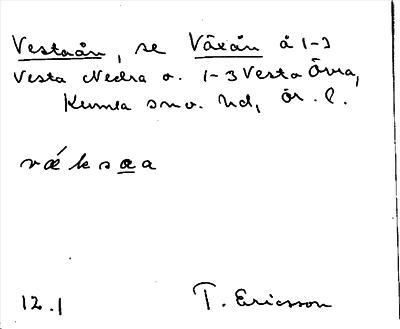 Vestaån, se Växån å 1-3
Vesta Nedra o. 1-3 Vesta Övra,
Kumla sn o. hd, Ör. l.
vǽksa̲a
12.1 T. Ericsson